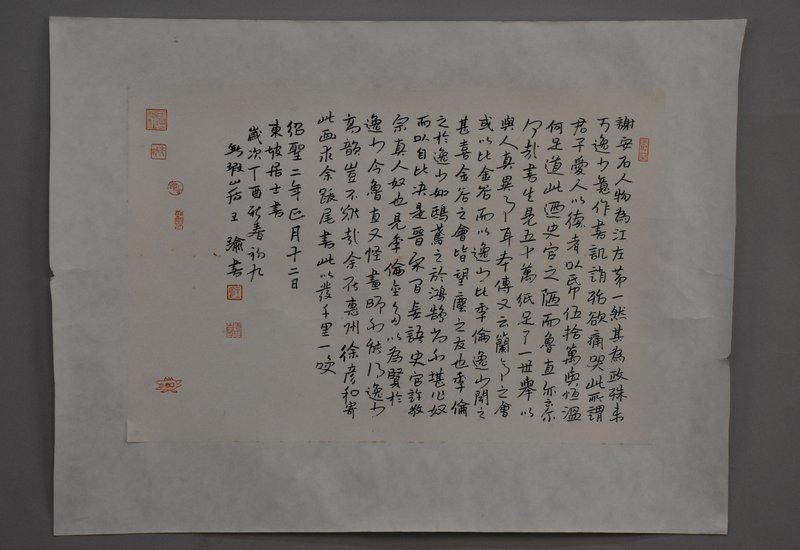 謝安石人物為江左第一然其為政殊未
可逸少意作書譏誚殆欲痛哭此所謂
君子愛人以德者以帋伍拾萬與恒溫
何足道此迺史官之陋而魯直亦云尓
何哉書生見五十萬紙足了一世舉以
與人真異事耳本傳又云蘭亭之會
或以比金谷而以逸少比季倫逸少聞之
甚喜金谷之會皆望塵之友也季倫
之於逸少如鴟鳶之於鴻鵠尚不堪作奴
而以自比决是晉宋間妄語史官許敬
宗真人奴也見季倫金多以為賢於
逸少今魯直又怪畫師不能得逸少
高韻豈不難哉余在惠州徐彥和寄
此画求余跋尾書此以發千里一咲
紹聖二年正月十二日
東坡居士書
歲次丁酉新春初九
無瑕山莊王 書